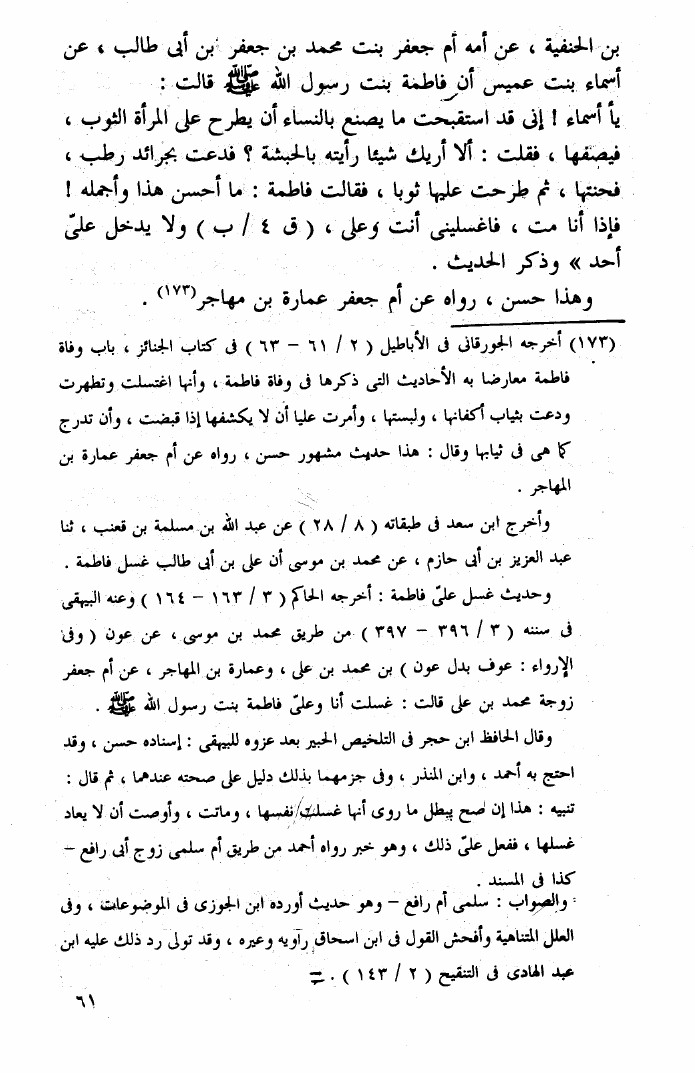 بن الحنفية ، عن أمه أم جعفر بنت محمد بن جعفر بن أبى طالب ، عن
أسماء بنت عميس أن فاطمة بنت رسول الله ﷺ قالت :
يأ أسماء ! إنى قد استقبحت ما يصنع بالنساء أن يطرح على المرأة الثوب ،
فيصفها ، فقلت : ألا أريك شيئا رأيته بالحبشة ؟ فدعت بجرائد رطب ،
فحنتها ، ثم طرحت عليها ثوبا ، فقالت فاطمة : ما أحسن هذا وأجمله !
فإذا أنا مت ، فاغسلينى أنت وعلى ، ( ق ٤ / ب ) ولا يدخل علىّ
أحد » وذكر الحديث .
وهذا حسن ، رواه عن أم جعفر عمارة بن مهاجر(١٧٣) .
(١٧٣) أخرجه الجورقانى فى الأباطيل ( ٢ / ٦١ – ٦٣ ) فى كتاب الجنائز ، باب وفاة
فاطمة معارضا به الأحاديث التى ذكرها فى وفاة فاطمة ، وأنها اغتسلت وتطهرت
ودعت بثياب أكفانها ، ولبستها ، وأمرت عليا أن لا يكشفها إذا قبضت ، وأن تدرج
كما هى فى ثيابها وقال : هذا حديث مشهور حسن ، رواه عن أم جعفر عمارة بن
المهاجر .
وأخرج ابن سعد فى طبقاته ( ٨ / ٢٨ ) عن عبد الله بن مسلمة بن قعنب ، ثنا
عبد العزيز بن أبى حازم ، عن محمد بن موسى أن على بن أبى طالب غسل فاطمة .
وحديث غسل علىّ فاطمة : أخرجه الحاكم ( ٣ / ١٦٣ – ١٦٤ ) وعنه البيهقى
فى سننه ( ٣ / ٣٩٦ – ٣٩٧ ) من طريق محمد بن موسى ، عن عون ( وفى
الإرواء : عوف بدل عون ) بن محمد بن على ، وعمارة بن المهاجر ، عن أم جعفر
زوجة محمد بن على قالت : غسلت أنا وعلىّ فاطمة بنت رسول الله ﷺ .
وقال الحافظ ابن حجر فى التلخيص الحبير بعد عزوه للبيهقى : إسناده حسن ، وقد
احتج به أحمد ، وابن المنذر ، وفى جزمهما بذلك دليل على صحته عندهما ، ثم قال :
تنبيه : هذا إن صح يبطل ما روى أنها غسلت نفسها ، وماتت ، وأوصت أن لا يعاد
غسلها ، ففعل علىّ ذلك ، وهو خبر رواه أحمد من طريق أم سلمى زوج أبى رافع –
كذا فى المسند .
والصواب : سلمى أم رافع – وهو حديث أورده ابن الجوزى فى الموضوعات ، وفى
العلل المتناهية وأفحش القول فى ابن اسحاق راويه وغيره ، وقد تولى رد ذلك عليه ابن
عبد الهادى فى التنقيح ( ٢ / ١٤٣ ) . =
٦١